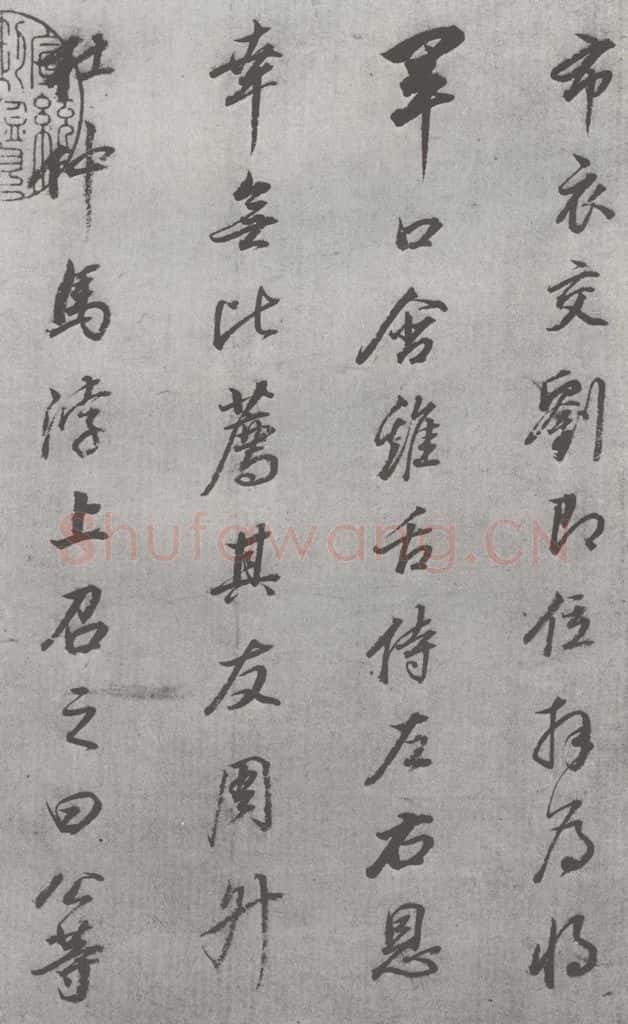 布衣交劉即位拜為將
軍口含雞舌侍左右恩
幸無比薦其友周升
杜仲馬淳上召之曰公等
Shufawang.CN